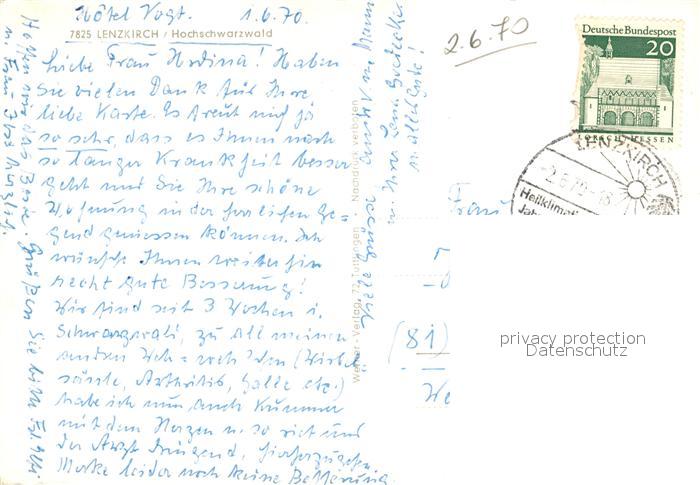 Hotel Vogt. 1.6.70.
7825 LENZKIRCH / Hochschwarzwald
Liebe Frau Hrdina! Haben
Sie vielen Dank für Ihre
liebe Karte. Es freut mich ja
so sehr, dass es Ihnen nach
so langer Krankheit besser
geht und Sie Ihre schöne
Wohnung in der herrlichen Ge=
gend geniessen können. Ich
wünsche Ihnen weiterhin
recht gute Besserung!
Wir sind seit 3 Wochen i.
Schwarzwald, zu all meinen
andren Weh=wehchen (Wirbel
säule, Arthritis, Galle etc.)
habe ich nun auch Kummer
mit dem Herzen u. so riet uns
der Arzt dringend, hierherzugehen.
Merke leider noch keine Besserung.
Hoffen wir das Beste. Grüßen Sie bitte
u. Frau
Viele Grüße
u. Ihre
alles Gute!
Werner-Verlag, 72 Tuttlingen · Nachdruck verboten
2.6.70
Deutsche Bundespost
20
LORSCH/HESSEN
LENZKIRCH
-2.6.70-18
Heilklimati
Jah
Frau
(81)
We
privacy protection
Datenschutz